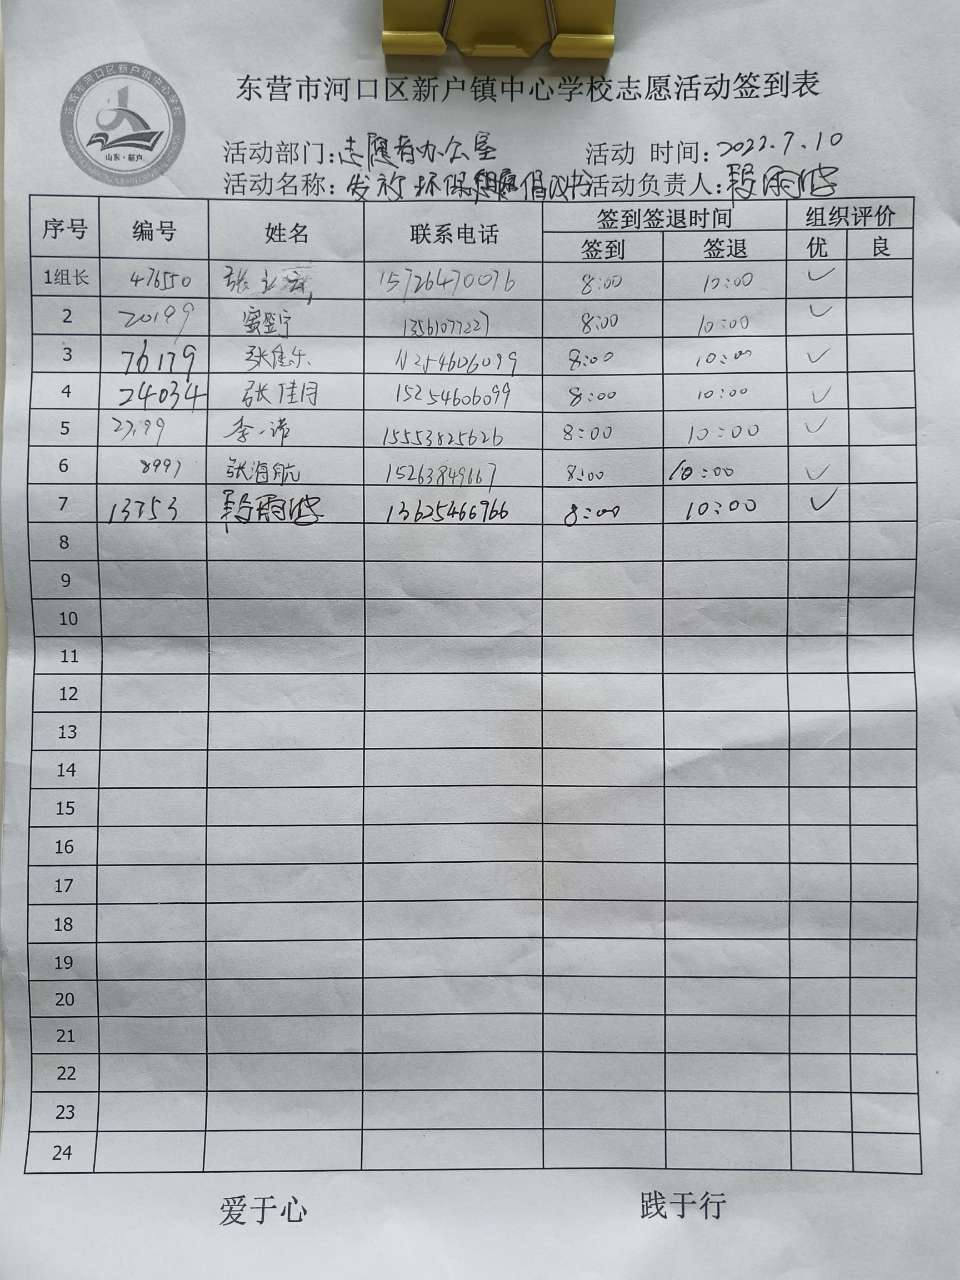 东营市河口区新户镇中心学校
山东·新户
东营市河口区新户镇中心学校志愿活动签到表
活动部门:志愿者办公室 活动 时间:2022.7.10
活动名称:发放环保倡议书 活动负责人:
序号 编号 姓名 联系电话 签到签退时间 组织评价
签到 签退 优 良
1组长 476550 张 15726470076 8:00 10:00 ✓
2 20199 13561077227 8:00 10:00 ✓
3 76179 张佳乐 15254606099 8:00 10:00 ✓
4 24034 张佳月 15254606099 8:00 10:00 ✓
5 李一诺 15553825626 8:00 10:00 ✓
6 8991 张海航 15263849667 8:00 10:00 ✓
7 13753 13625466966 8:00 10:00 ✓
8
9
10
11
12
13
14
15
16
17
18
19
20
21
22
23
24
爱于心 践于行